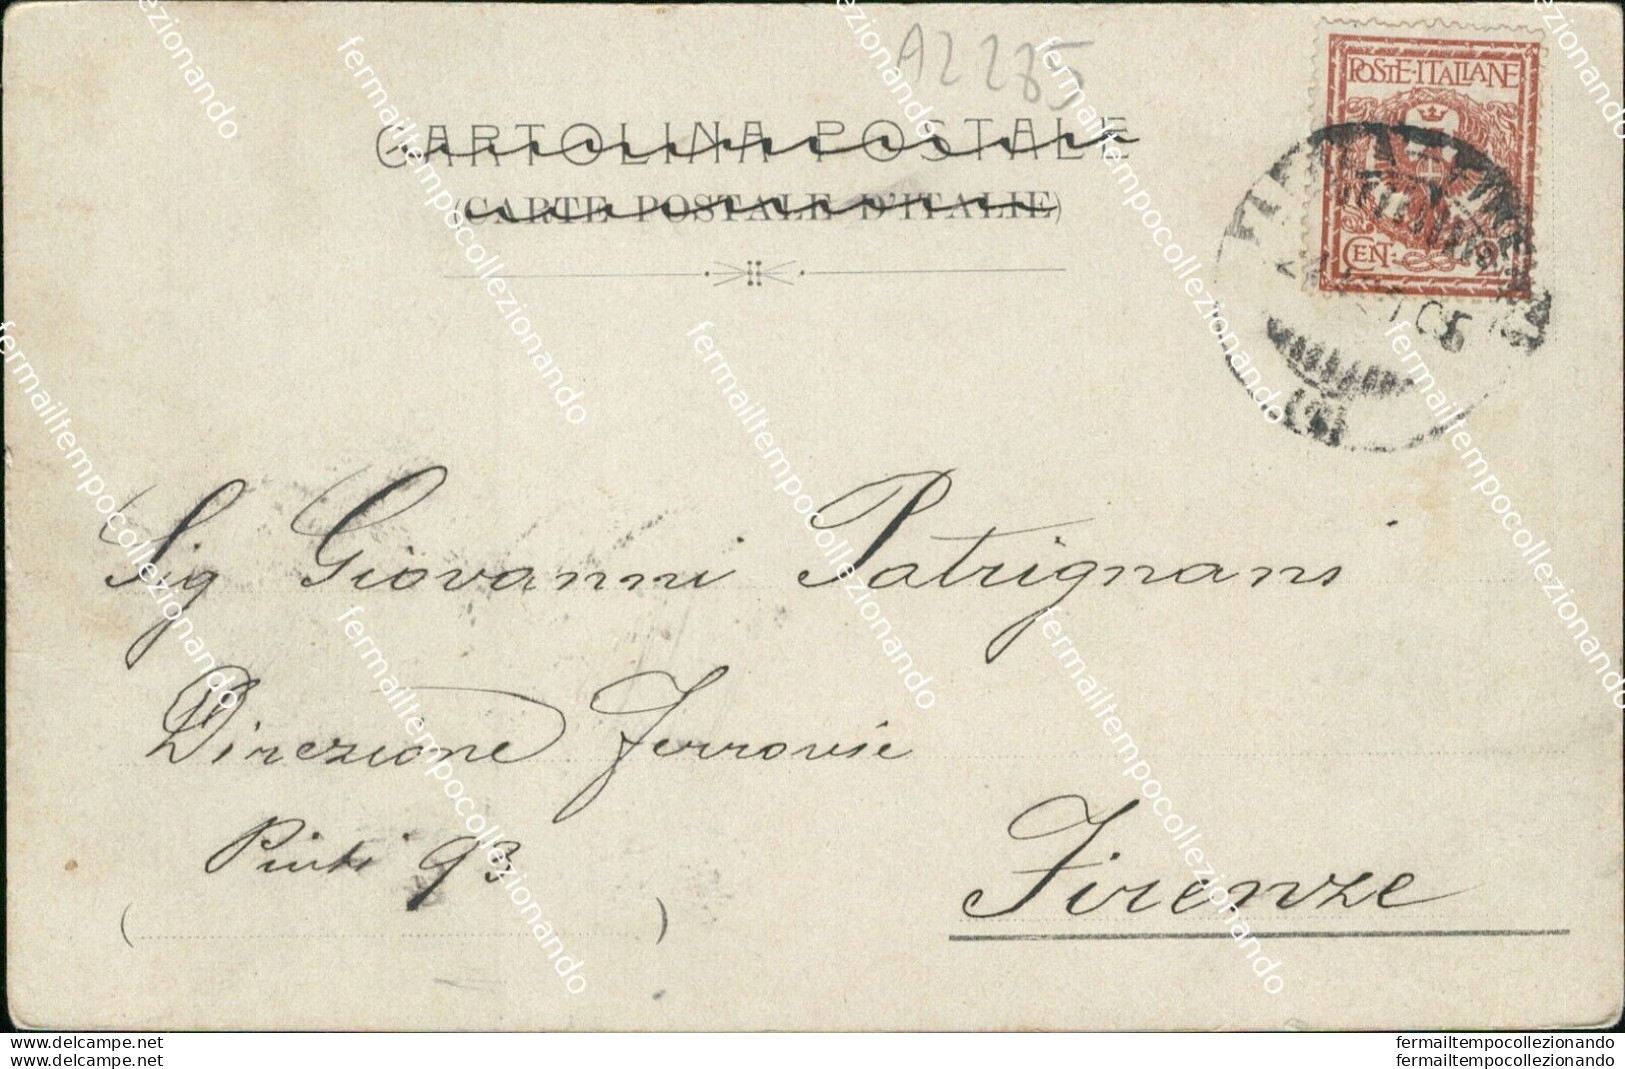 A2285
CARTOLINA POSTALE
(CARTE POSTALE D'ITALIE)
POSTE·ITALIANE
CENT. 2
05
Sig Giovanni Patrignani
Direzione Ferrovie
Pinti 93
Firenze
( )
fermailtempocollezionando
fermailtempocollezionando
fermailtempocollezionando
fermailtempocollezionando